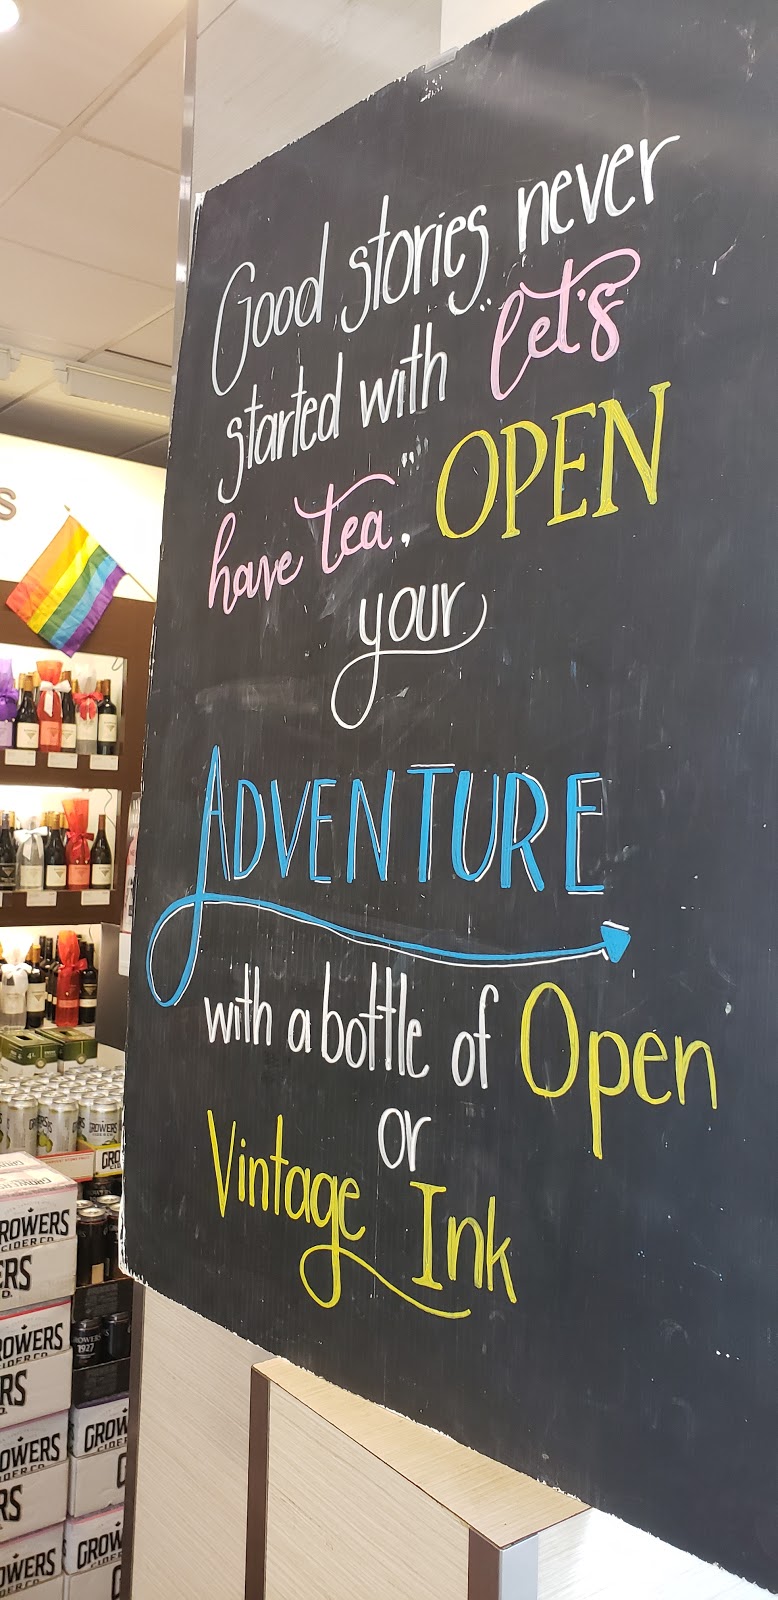 Good stories never
started with "let's
have tea." OPEN
your
ADVENTURE
with a bottle of Open
or
Vintage Ink
S
GROWERS
GRO
ROWERS
CIDER CO.
ERS
ROWERS
CIDER CO.
RS
GROWERS
1927
GROW
CIDER
ROWERS
CIDER CO.
RS
GROW
ROWERS